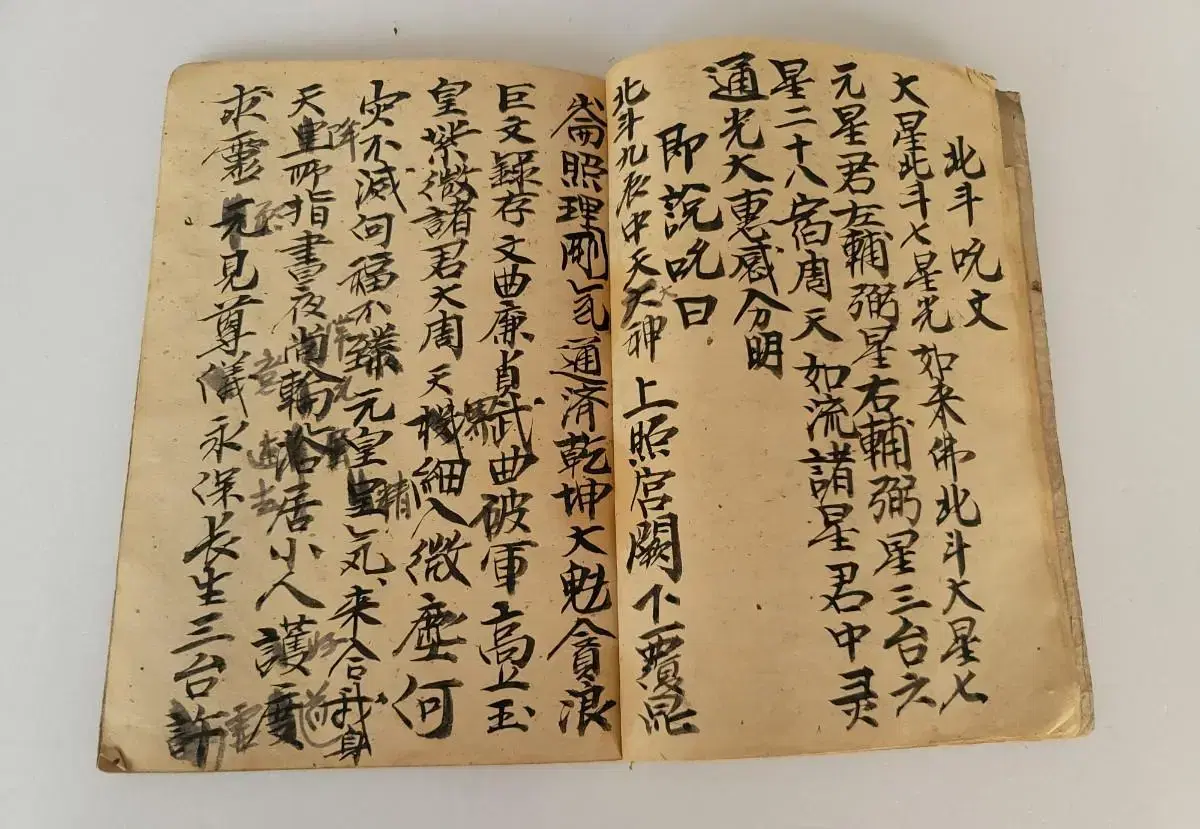 北斗咒文
大星北斗七星光如来佛北斗大星七
元星君左輔弼星右輔弼星三台六
星二十八宿周天如流諸星君中灵
通光大惠感分明
即説咒曰
北斗九辰中天大神上照宫闕下覆昆
崙照理剛气通済乾坤大魁貪浪
巨文錄存文曲廉貞武曲破軍高上玉
皇紫微諸君大周天機細入微塵何
灾不滅何福不臻元皇气来合我身
天所指晝夜尚輪治居小人護度
求靈元見尊儀永保長生三台許